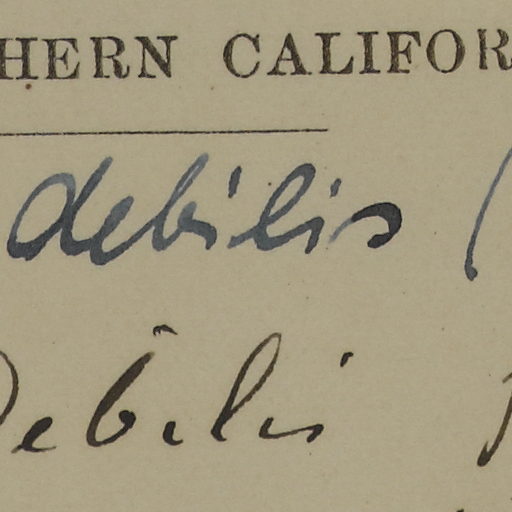 HERN CALIFOR
debilis (
Debilis